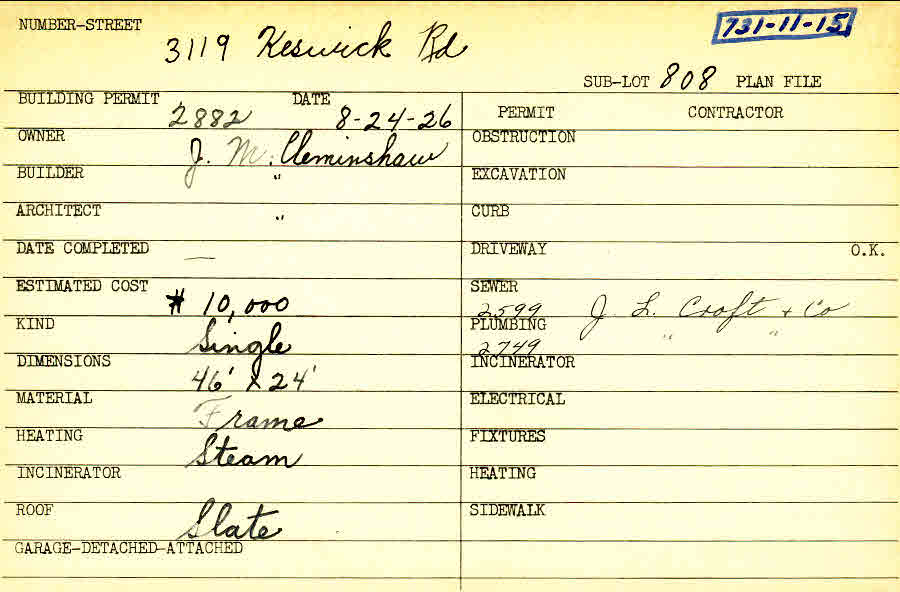 NUMBER-STREET
3119 Keswick Rd
731-11-15
SUB-LOT 808 PLAN FILE
BUILDING PERMIT 2882 DATE 8-24-26
OWNER J. M. Cleminshaw
BUILDER "
ARCHITECT "
DATE COMPLETED —
ESTIMATED COST $ 10,000
KIND Single
DIMENSIONS 46' x 24'
MATERIAL Frame
HEATING Steam
INCINERATOR
ROOF Slate
GARAGE-DETACHED-ATTACHED
PERMIT CONTRACTOR
OBSTRUCTION
EXCAVATION
CURB
DRIVEWAY O.K.
SEWER
2599 J. L. Croft + Co
PLUMBING
2749 " "
INCINERATOR
ELECTRICAL
FIXTURES
HEATING
SIDEWALK